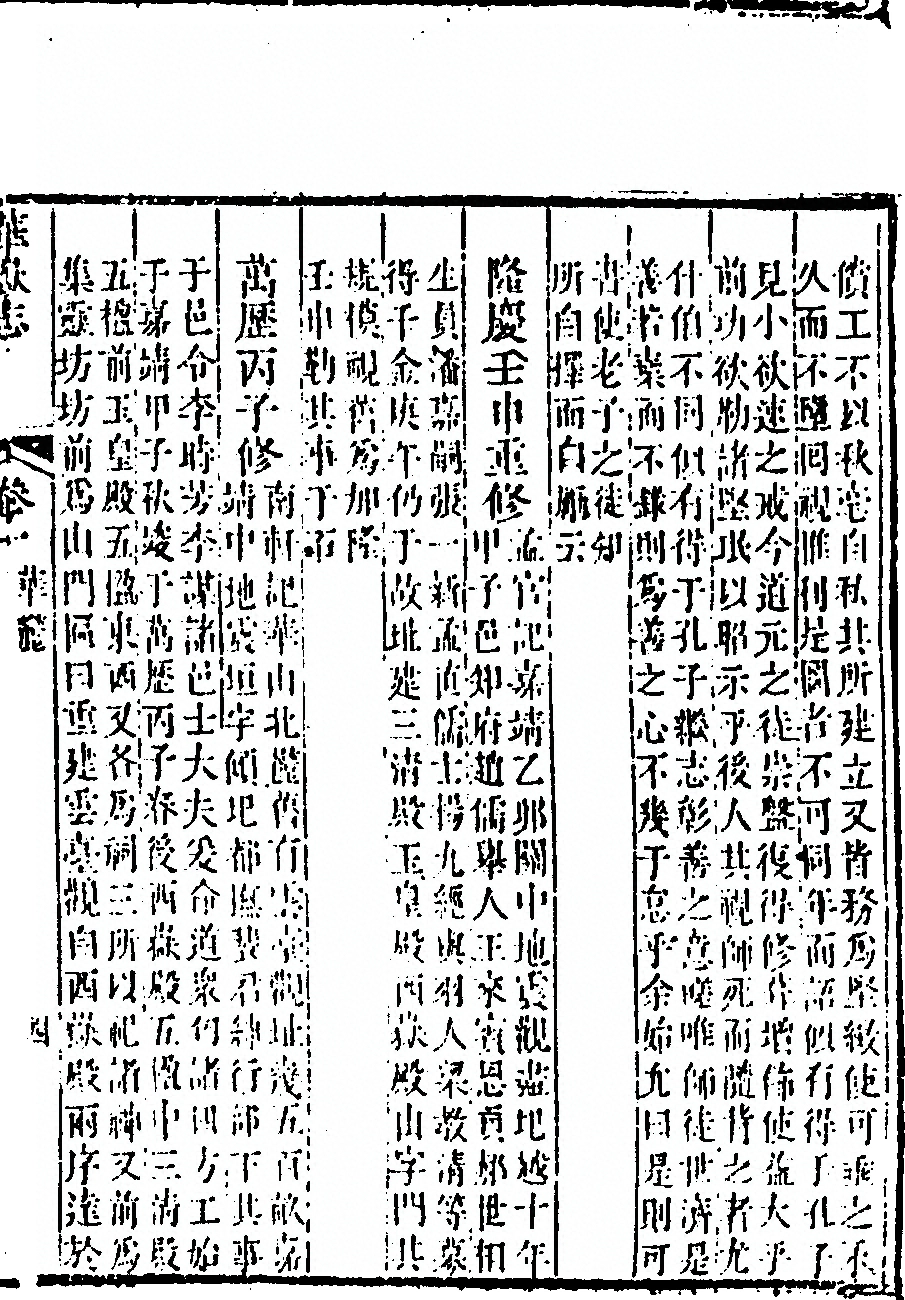 償工不以秋毫自私其所建立又皆務為堅緻使可垂之永
久而不墮回視惟利是圖者不可同年而語似有得于孔子
見小欲速之戒今道元之徒崇盤復得修葺增飾使益大乎
前功欲勒諸堅珉以昭示乎後人其視師死而隨背之者尤
什伯不同似有得于孔子繼志彰善之意嗟唯師徒世濟是
善若棄而不錄則為善之心不幾于怠乎余始允曰是則可
書使老子之徒知
所自擇而自勵云
隆慶壬申重修
孟官記嘉靖乙卯關中地震觀盡圮越十年
甲子邑知府趙儒舉人王來賓恩貢郝世相
生員潘嘉嗣張一新孟直儒士楊九經與羽人梁教清等募
得千金庚午仍于故址建三清殿玉皇殿西嶽殿山字門其
規模視舊為加隆
壬申勒其事于石
萬曆丙子修
南軒記華山北麓舊有雲臺觀址幾五百畝嘉
靖中地震垣宇傾圮都撫裴君紳行部下其事
于邑令李時芳李謀諸邑士大夫爰命道眾何諸四方工始
于嘉靖甲子秋竣于萬曆丙子春後西嶽殿五楹中三清殿
五楹前玉皇殿五楹東西又各為祠三所以祀諸神又前為
集靈坊坊前為山門扁曰重建雲臺觀自西嶽殿兩序達於
華嶽志
卷一
華麓
四